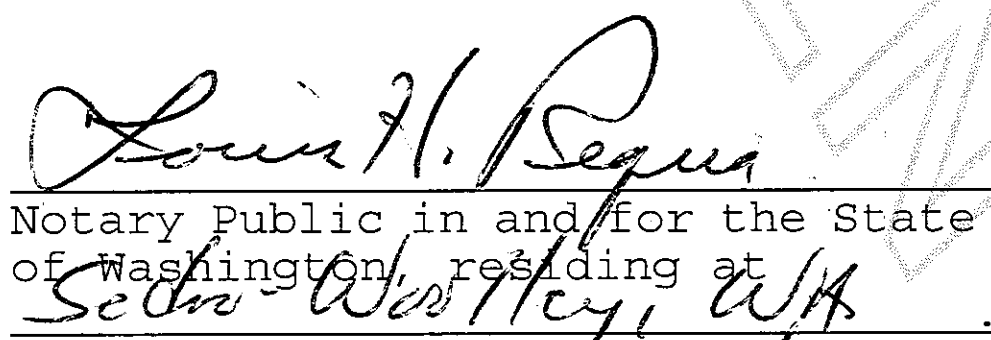 Louis H. Requa
Notary Public in and for the State
of Washington, residing at
Sedro-Woolley, WA .